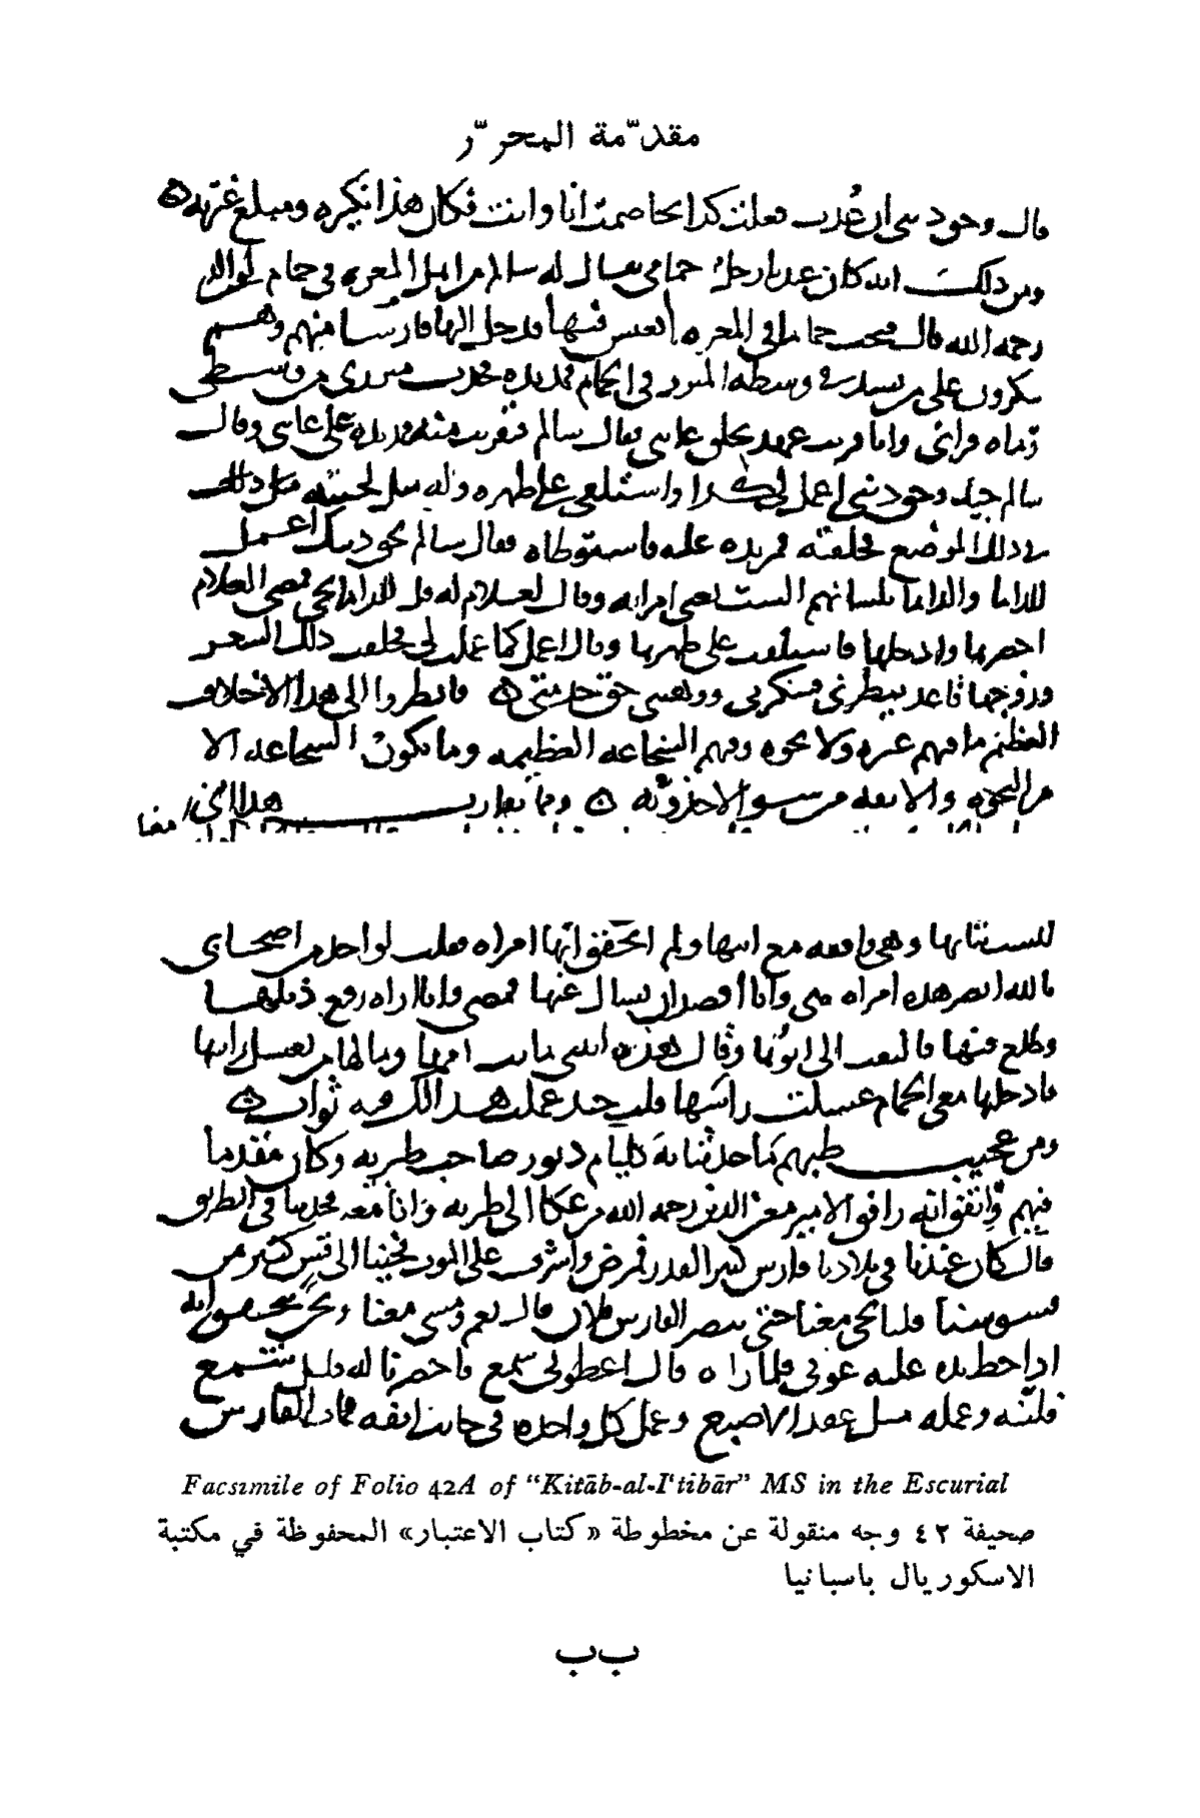 مقدّمة المحرّر
قال وحق ديني ان عدت فعلت كذا تخاصمت انا وانت فكان هذا نكيره ومبلغ غيرته
ومن ذلك انه كان عندنا رجل حمامي يقال له سالم من اهل المعره في حمام لوالدي
رحمه الله قال فتحت حماما في المعره اتعيش فيها فدخل اليها فارس منهم وهم
ينكرون على من يشد في وسطه الميزر في الحمام فمد يده فجذب ميزري من وسطي
رماه فراني وانا قريب عهد بحلق عانتي فقال سالم فتقربت منه فمد يده على عانتي وقال
سالم جيد وحق ديني اعمل لي كذا واستلقى على ظهره وله مثل لحيته مثل ذلك
في ذلك الموضع فحلقته فمر يده عليه فاستوطاه فقال سالم بحق دينك اعمل
للداما والداما بلسانهم الست يعني امراته وقال لغلام له قل للداما تجي فمضى الغلام
احضرها وادخلها فاستلقت على ظهرها وقال اعمل كما عملت لي فحلقت ذلك الشعر
وزوجها قاعد ينظرني فشكرني ووهبني حق خدمتي فانظروا الى هذا الاختلاف
العظيم ما فيهم غيره ولا نخوه وفيهم الشجاعه العظيمه وما تكون الشجاعه الا
من النخوه والانفه من سو الاحدوثه ومما يقارب هذا انني
وهي واقفه مع ابيها ولم اتحقق انها امراه فقلت لواحد من اصحابي
بالله ابصر هذه امراه هي وانا اقصد ان يسال عنها فمضى وانا اراه رفع ذيلها
وطلع فيها فالتفت الى ابوها وقال هذه ابنتي ماتت امها وما لها من يغسل راسها
فادخلتها معي الحمام غسلت راسها قلت جيد عملت هذا لك فيه ثواب
ومن عجيب طبهم ما حدثنا به كليام دبور صاحب طبريه وكان مقدما
فيهم واتفق انه رافق الامير معين الدين رحمه الله من عكا الى طبريه وانا معه فحدثنا في الطريق
قال كان عندنا في بلادنا فارس كبير القدر فمرض واشرف على الموت فجينا الى قس كبير من
قسوسنا قلنا تجي معنا حتى تبصر الفارس فلان قال نعم ومشى معنا ونحن نتحقق انه
اذا حط يده عليه عوفي فلما راه قال اعطوني شمع فاحضرنا له قليل شمع
فلينه وعمله مثل عقد الاصبع وعمل كل واحده في جانب انفه فمات الفارس
Facsimile of Folio 42A of “Kitāb-al-I‘tibār” MS in the Escurial
صحيفة ٤٢ وجه منقولة عن مخطوطة «كتاب الاعتبار» المحفوظة في مكتبة
الاسكوريال باسبانيا
ب ب